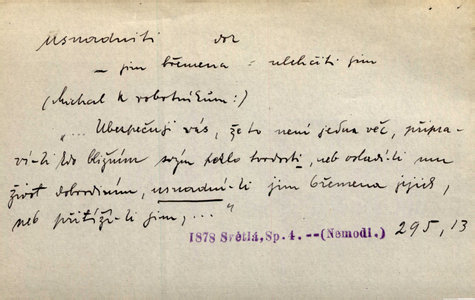 usnadniti dok
– jim břemena = ulehčiti jim
(Michal k robotníkům:)
„... Ubezpečuji vás, že to není jedna věc, připra-
ví-li kdo bližním svým peklo tvrdostí, neb osladí-li mu
život dobrodiním, usnadní-li jim břemena jejich,
neb přitíží-li jim, ..."
1878 Světlá, Sp. 4. --(Nemodl.) 295, 13